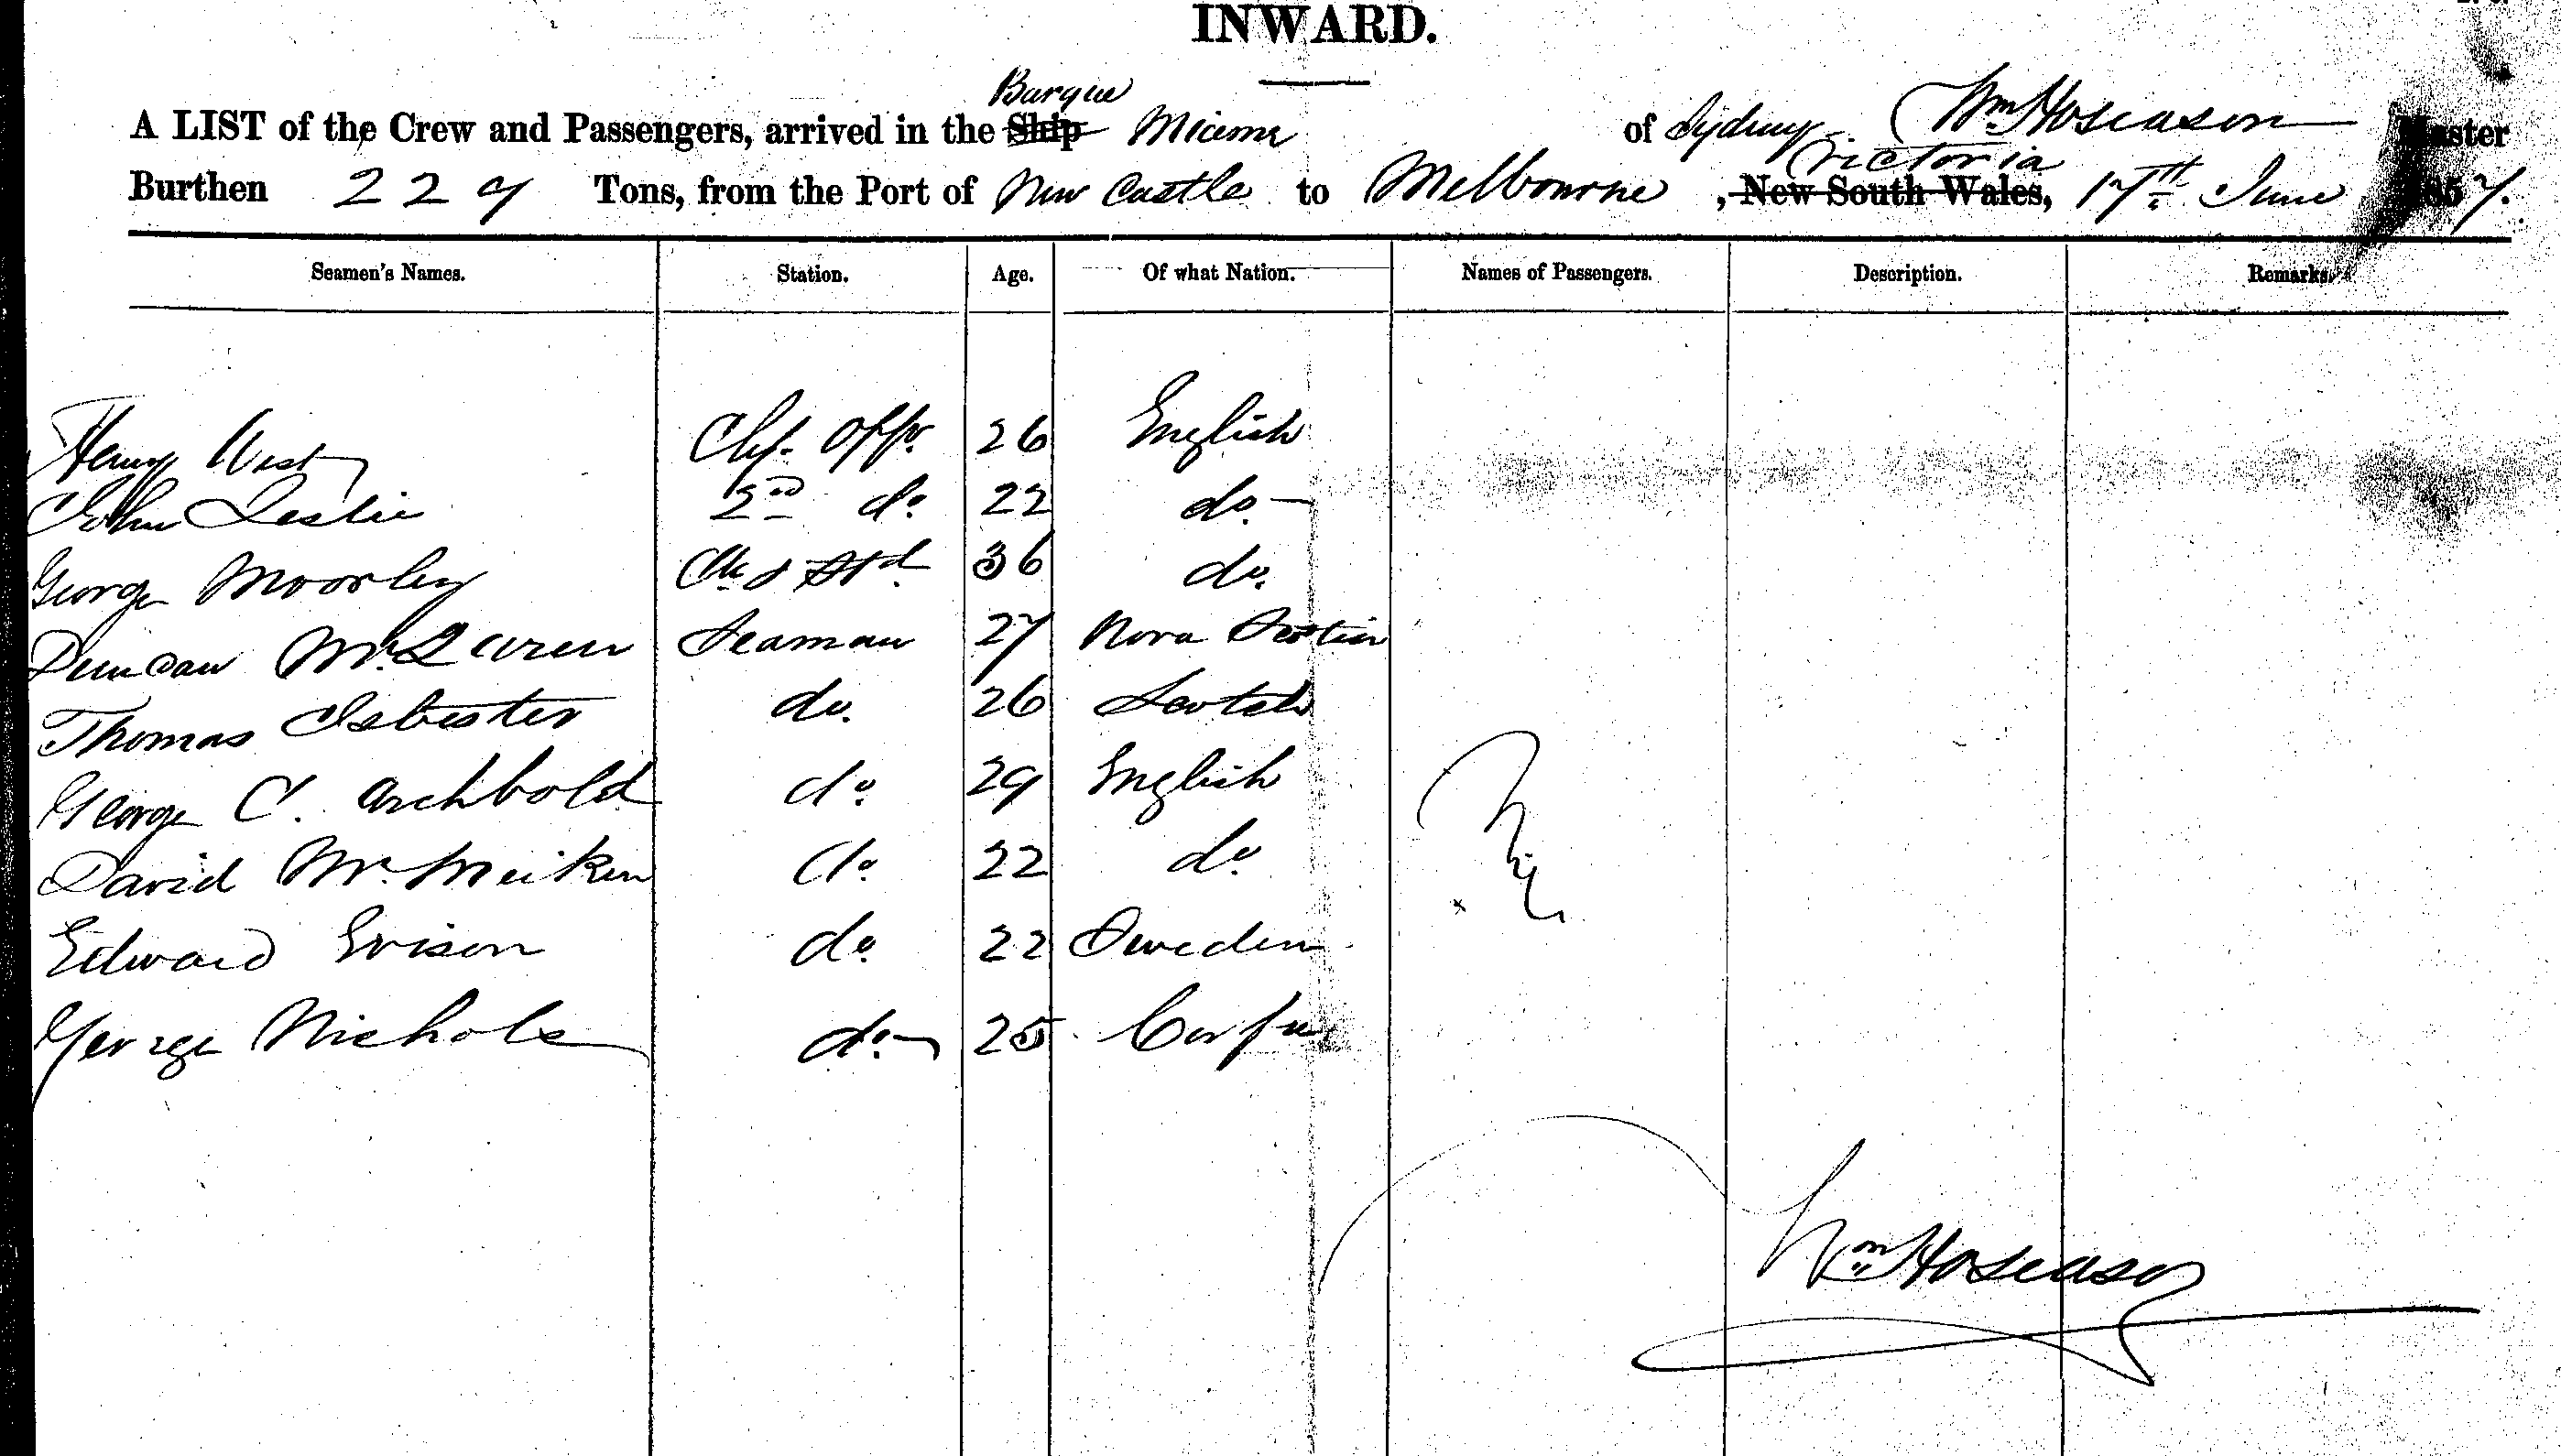 INWARD.
Barque
A LIST of the Crew and Passengers, arrived in the Ship of Sydney Wm Hoseason Master
Victoria
Burthen 229 Tons, from the Port of New Castle to Melbourne, New South Wales, 17th June 1857.
Seamen's Names. Station. Age. Of what Nation. Names of Passengers. Description. Remarks.
Henry West Chf. Offr. 26 English
John Leslie 2nd do. 22 do.
George Moorley Ck & Std 36 do.
Duncan McLaren Seaman 27 Nova Scotia
Thomas Isbester do. 26 Scotch
George C. Archbold do. 29 English
David McMeiken do. 22 do.
Edward Erison do. 22 Sweden
George Nichols do. 25 Corfu
Nil
Wm Hoseason